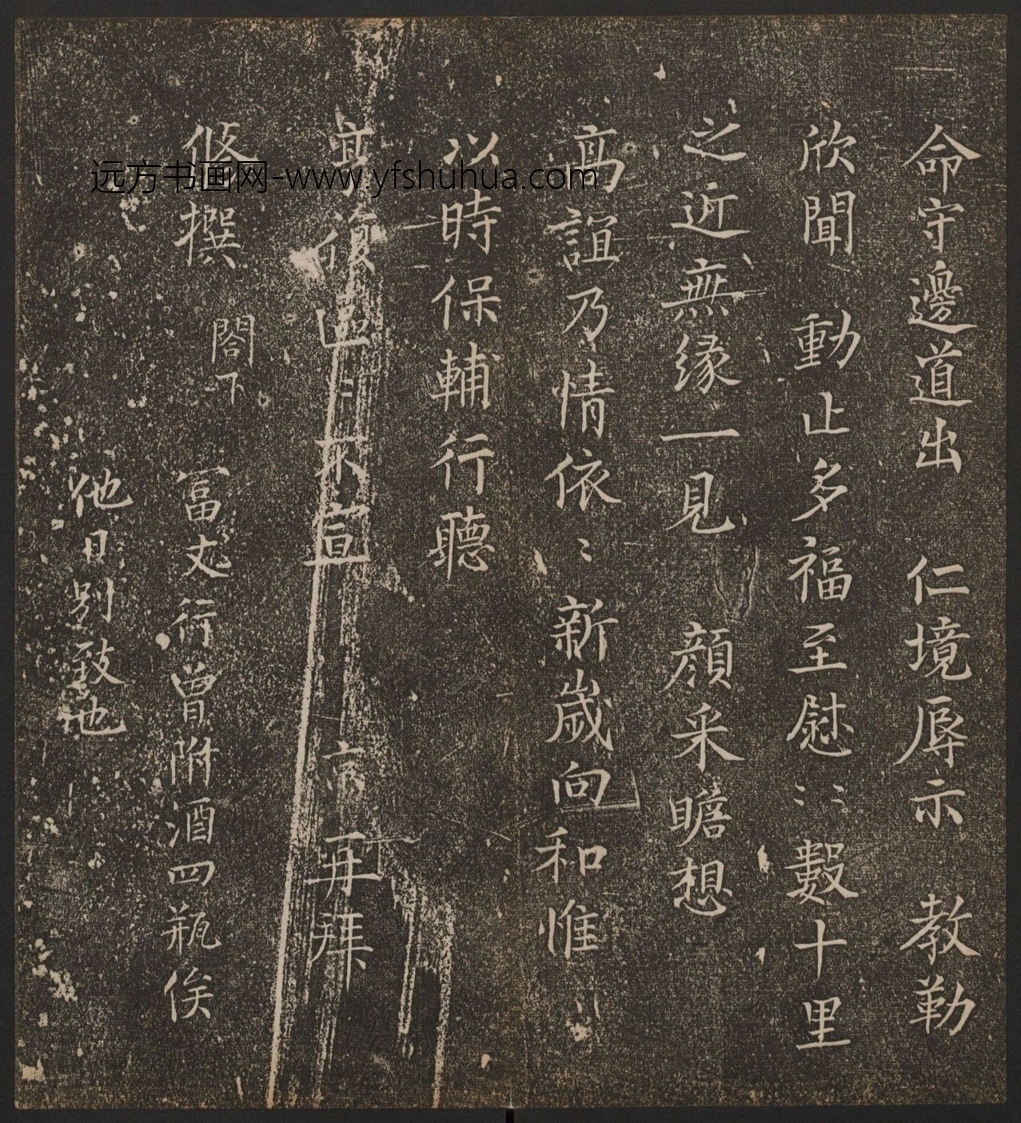 命守邊道出 仁境辱示 教勤
欣聞 動止多福至慰〻數十里
之近無緣一見 顏采瞻想
高誼乃情依〻新歲向和惟
以時保輔行聽
復區〻不宣 再拜
脩撰 閤下 冨丈行曾附酒四瓶俟
他日别致也
远方书画网-www.yfshuhua.com